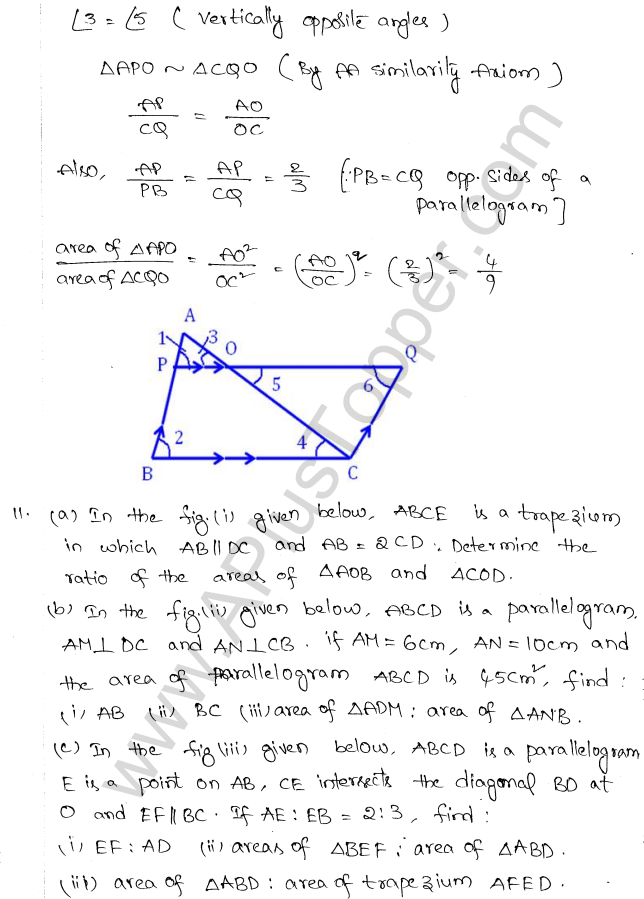 ∠3 = ∠5 ( Vertically opposite angles )
△APO ~ △CQO ( By AA similarity Axiom )
AP/CQ = AO/OC
Also, AP/PB = AP/CQ = 2/3 [∵ PB = CQ opp. sides of a
parallelogram]
area of △APO/area of △CQO = AO²/OC² = (AO/OC)² = (2/3)² = 4/9
A
1 3 O Q
P
5 6
2 4
B C
11. (a) In the fig.(i) given below, ABCE is a trapezium
in which AB||DC and AB = 2CD. Determine the
ratio of the areas of △AOB and △COD.
(b) In the fig.(ii) given below, ABCD is a parallelogram,
AM⊥DC and AN⊥CB. if AM = 6cm, AN = 10cm and
the area of parallelogram ABCD is 45cm², find :
(i) AB (ii) BC (iii) area of △ADM : area of △ANB.
(c) In the fig (iii) given below, ABCD is a parallelogram
E is a point on AB, CE intersects the diagonal BD at
O and EF||BC. If AE : EB = 2:3, find :
(i) EF : AD (ii) areas of △BEF : area of △ABD.
(iii) area of △ABD : area of trapezium AFED.
www.APlusTopper.com